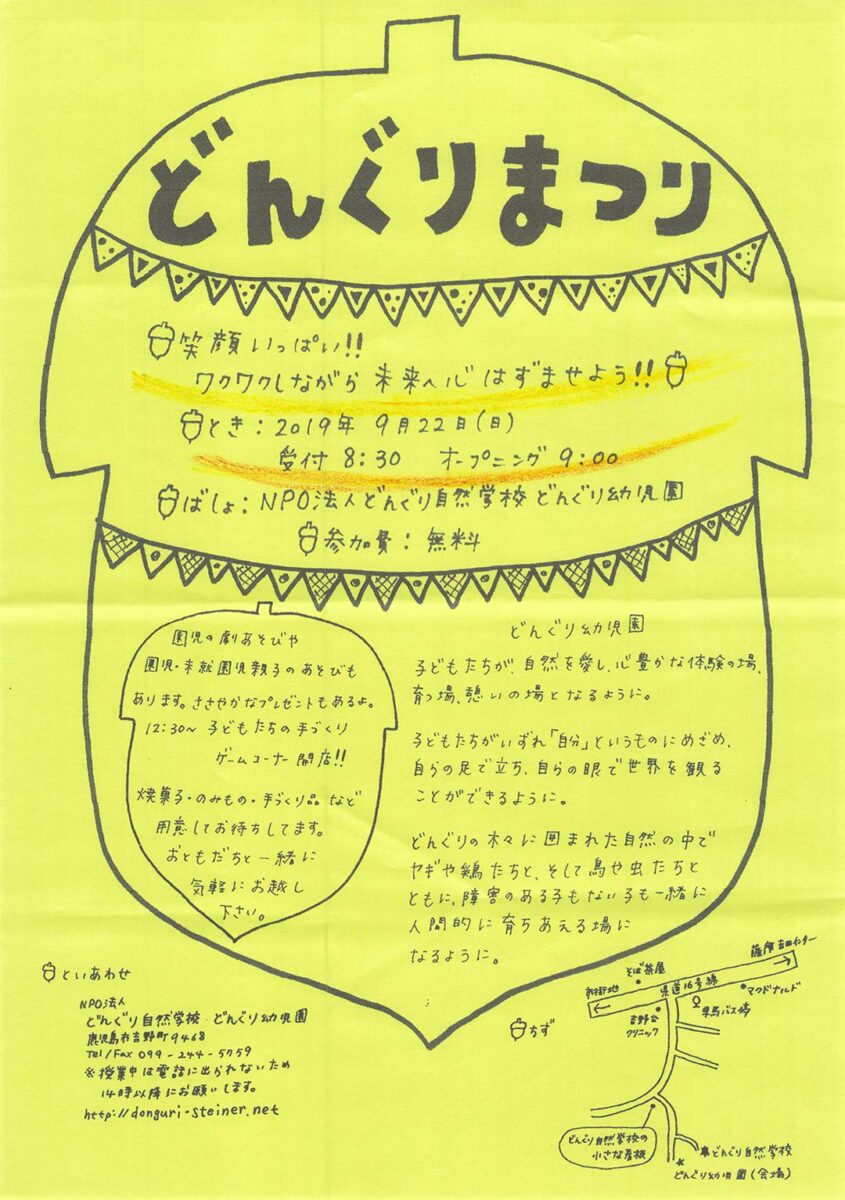 どんぐりまつり
笑顔いっぱい!!
ワクワクしながら 未来へ心 はずませよう!!
とき：2019年 9月22日(日)
受付 8:30 オープニング 9:00
ばしょ：NPO法人どんぐり自然学校 どんぐり幼児園
参加費：無料
園児の劇あそびや
園児・未就園児親子のあそびも
あります。ささやかなプレゼントもあるよ。
12:30~ 子どもたちの手づくり
ゲームコーナー 開店!!
焼菓子・のみもの・手づくり品など
用意してお待ちしてます。
おともだちと一緒に
気軽にお越し
下さい。
どんぐり幼児園
子どもたちが、自然を愛し、心豊かな体験の場、
育つ場、憩いの場となるように。
子どもたちがいずれ「自分」というものにめざめ、
自らの足で立ち、自らの眼で世界を観る
ことができるように。
どんぐりの木々に囲まれた自然の中で
ヤギや鶏たちと、そして鳥や虫たちと
ともに、障害のある子もない子も一緒に
人間的に育ちあえる場に
なるように。
といあわせ
NPO法人
どんぐり自然学校 どんぐり幼児園
鹿児島市吉野町9468
Tel/Fax 099-244-5759
※授業中は電話に出られないため
14時以降にお願いします。
http://donguri-steiner.net
ちず
薩摩吉田インター
そば茶屋
県道16号線
市街地
マクドナルド
吉野台
クリニック
早馬バス停
どんぐり自然学校の
小さな看板
どんぐり自然学校
どんぐり幼児園(会場)